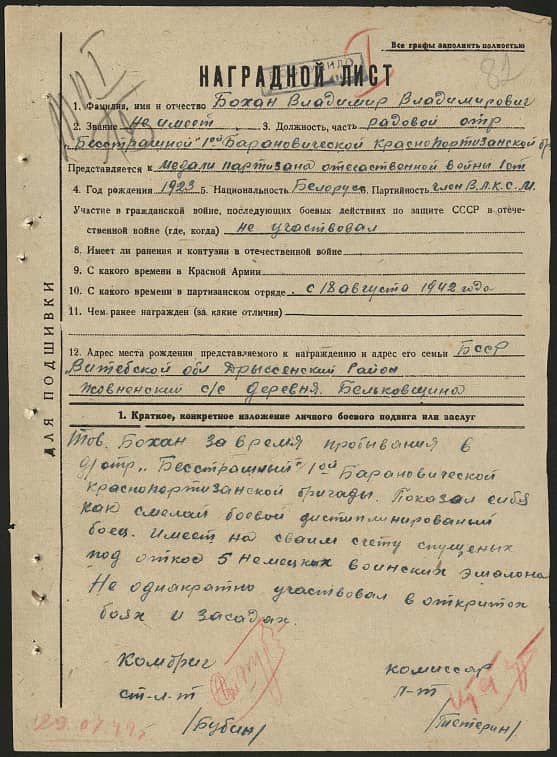 Все графы заполнить полностью
82
НАГРАДНОЙ ЛИСТ
1. Фамилия, имя и отчество Бохан Владимир Владимирович
2. Звание не имеет 3. Должность, часть радовой отр
„Бесстрашной" 1ой Барановической краснопортизанской бр
Представляется к медали партизана отечественной войны 1 ст
4. Год рождения 1923 5. Национальность Белорус 6. Партийность член В.Л.К.С.М.
Участие в гражданской войне, последующих боевых действиях по защите СССР в отече-
ственной войне (где, когда) не участвовал
8. Имеет ли ранения и контузии в отечественной войне
9. С какого времени в Красной Армии
10. С какого времени в партизанском отряде с 18 августа 1942 года
11. Чем ранее награжден (за какие отличия)
12. Адрес места рождения представляемого к награждению и адрес его семьи БССР
Витебской обл Дрыссенский Район
с/с деревня. Бельковщина
ДЛЯ ПОДШИВКИ
1. Краткое, конкретное изложение личного боевого подвига или заслуг
Тов. Бохан за время пробывания в
п/отр „Бесстрашный" 1ой Барановической
краснопортизанской бригады. Показал себя
как смелай боевой дистиплинированый
боец. Имеет на своим счету спущеных
под откос 5 немецких воинских эшалона
Не однакратно участвовал в откритох
боях и засадах.
Комбриг комиссар
ст-л-т л-т
/Бубин/ /Тетерин/
29.07.44г